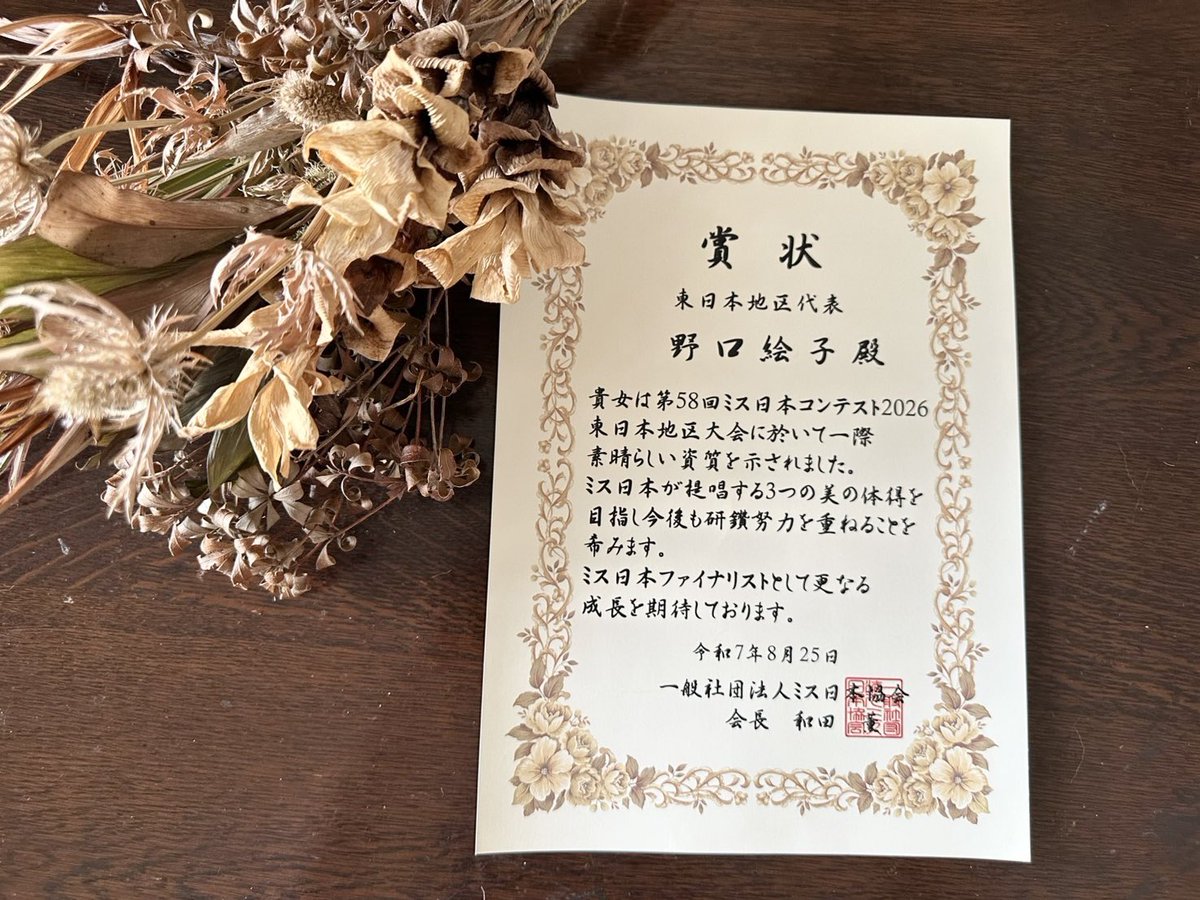 賞状
東日本地区代表
野口絵子殿
貴女は第58回ミス日本コンテスト2026
東日本地区大会に於いて一際
素晴らしい資質を示されました。
ミス日本が提唱する3つの美の体得を
目指し今後も研鑽努力を重ねることを
希みます。
ミス日本ファイナリストとして更なる
成長を期待しております。
令和7年8月25日
一般社団法人ミス日本協会
会長 和田 薫